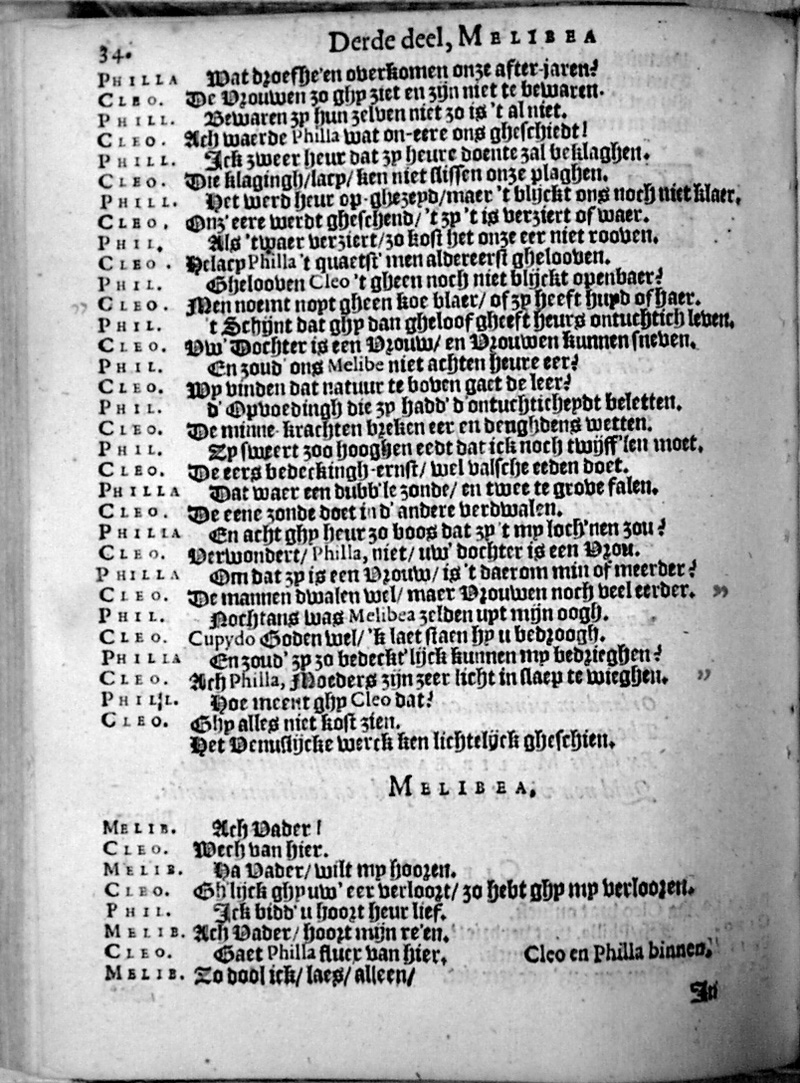 34.
Derde deel, MELIBEA
PHILLA Wat droefhe'en overkomen onze after-jaren?
CLEO. De Vrouwen zo ghy ziet en zijn niet te bewaren.
PHILL. Bewaren zy hun zelven niet zo is 't al niet.
CLEO. Ach waerde Philla wat on-eere ons gheschiedt!
PHILL. Ick zweer heur dat zy heure doente zal beklaghen.
CLEO. Die klagingh/lacy/ ken niet slissen onze plaghen.
PHILL. Het werd heur op-ghezeyd/maer 't blijckt ons noch niet klaer.
CLEO. Onz' eere werdt gheschend/ 't zy 't is verziert of waer.
PHIL. Als 'twaer verziert/zo kost het onze eer niet rooven.
CLEO. Helacy Philla 't quaetst' men aldereerst ghelooven.
PHIL. Ghelooven Cleo 't gheen noch niet blijckt openbaer?
CLEO. Men noemt noyt gheen koe blaer/ of zy heeft huyd of haer.
PHIL. 't Schijnt dat ghy dan gheloof gheeft heurs ontuchtich leven.
CLEO. Uw' Dochter is een Vrouw/ en Vrouwen kunnen sneven.
PHIL. En zoud' ons Melibe niet achten heure eer?
CLEO. Wy vinden dat natuur te boven gaet de leer?
PHIL. d' Opvoedingh die zy hadd' d'ontuchticheydt beletten.
CLEO. De minne-krachten breken eer en deughdens wetten.
PHIL. Zy sweert zoo hooghen eedt dat ick noch twijff'len moet.
CLEO. De eers bedeckingh-ernst/ wel valsche eeden doet.
PHILLA Dat waer een dubb'le zonde/ en twee te grove falen.
CLEO. De eene zonde doet in d' andere verdwalen.
PHILLA En acht ghy heur zo boos dat zy 't my loch'nen zou?
CLEO. Verwondert/ Philla, niet/ uw' dochter is een Vrou.
PHILLA Om dat zy is een Vrouw/ is 't daerom min of meerder?
CLEO. De mannen dwalen wel/ maer Vrouwen noch veel eerder. ”
PHIL. Nochtans was Melibea zelden uyt mijn oogh.
CLEO. Cupydo Goden wel/ 'k laet staen hy u bedroogh.
PHILLA En zoud' zy zo bedeckt'lijck kunnen my bedrieghen?
CLEO. Ach Philla, Moeders zijn zeer licht in slaep te wieghen. ”
PHILL. Hoe meent ghy Cleo dat?
CLEO. Ghy alles niet kost zien.
Het Venuslijcke werck ken lichtelijck gheschien.
MELIBEA.
MELIB. Ach Vader!
CLEO. Wech van hier.
MELIB. Ha Vader/ wilt my hooren.
CLEO. Gh'lijck ghy uw' eer verloort/ zo hebt ghy my verlooren.
PHIL. Ick bidd' u hoort heur lief.
MELIB. Ach Vader/ hoort mijn re'en.
CLEO. Gaet Philla flucx van hier. Cleo en Philla binnen.
MELIB. Zo dool ick/ laes/ alleen/